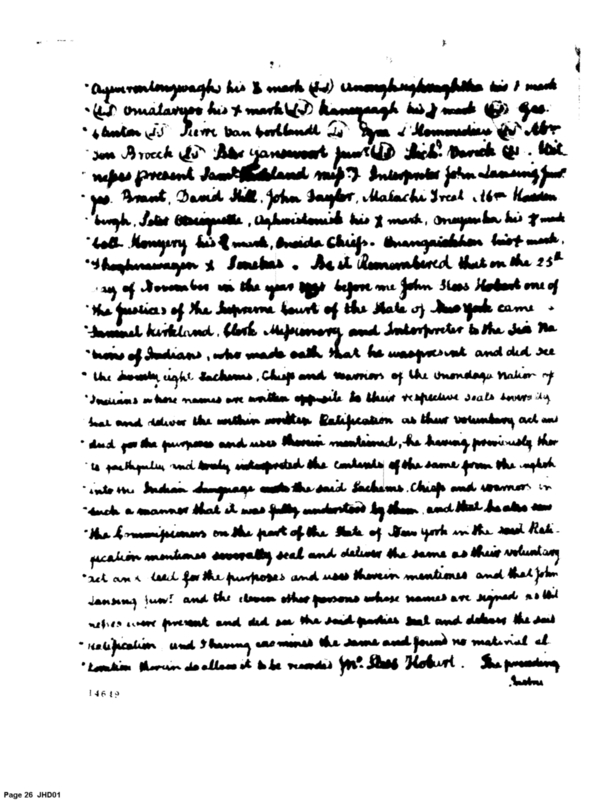 his mark (LS) his mark
(LS) his x mark (LS) his mark (LS) Geo.
Clinton (LS) Pierre Van Cortlandt (LS) Ezra L Hommedieu (LS) Abr
ten Broeck (LS) Peter Gansevoort Junr. (LS) Richd. Varick (LS). Wit
nesses present Saml. Kirkland Missy. & Interpreter John Lansing Junr.
Jas. Brant, David Hill, John Taylor, Malachi Treat,
burgh, Peter Otsiquette, his x mark, his mark
his mark, Oneida Chiefs. his mark,
x Senekas. Be it Remembered that on the 25th
day of November in the year before me John Sloss Hobart one of
the Justices of the Supreme Court of the State of New York came
Samuel Kirkland, Clerk Missionary and Interpreter to the Six Na
tions of Indians, who made oath that he was present and did see
the twenty eight Sachems, Chiefs and warriors of the Onondaga Nation of
Indians whose names are written opposite to their respective seals severally
seal and deliver the within written Ratification as their voluntary act and
deed for the purposes and uses therein mentioned, he having previously ther
to faithfully and truly interpreted the contents of the same from the english
into the Indian Language unto the said Sachems, Chiefs and warriors in
such a manner that it was fully understood by them, and that he also saw
the Commissioners on the part of the State of New York in the said Rati-
fication mentioned severally seal and deliver the same as their voluntary
act and deed for the purposes and uses therein mentioned and that John
Lansing Junr. and the eleven other persons whose names are signed as Wit
nesses were present and did see the said parties seal and deliver the said
ratification and I having examined the same and found no material al
teration therein do allow it to be recorded Jno. Sloss Hobart. The preceding
Instru
14649
Page 26 JHD01